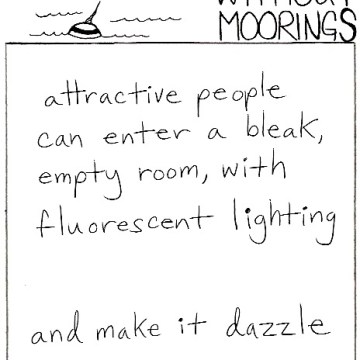 WITHOUT
MOORINGS
attractive people
can enter a bleak,
empty room, with
fluorescent lighting
and make it dazzle